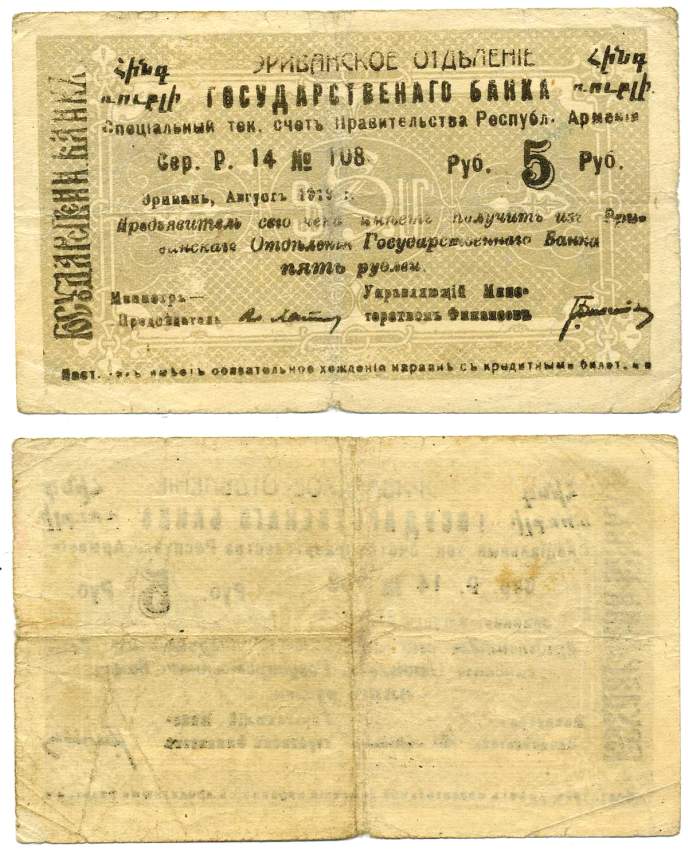 ЭРИВАНСКОЕ ОТДѢЛЕНІЕ
Հինգ
ռուբլի
Հինգ
ռուբլի
ГОСУДАРСТВЕНАГО БАНКА
Спеціальный тек. счетъ Правительства Республ. Арменія
Сер. Р. 14 № 108 Руб. 5 Руб.
Эривань, Августъ 1919 г.
Предъявитель сего чека имѣетъ получить изъ Эри-
ванскаго Отдѣленія Государственнаго Банка
пять рублей.
Министръ—
Предсѣдатель
Управляющій Минис-
терствомъ Финансовъ
Наст. чекъ имѣетъ обязательное хожденіе наравнѣ съ кредитными билет.
ГОСУДАРСТВЕН БАНКА